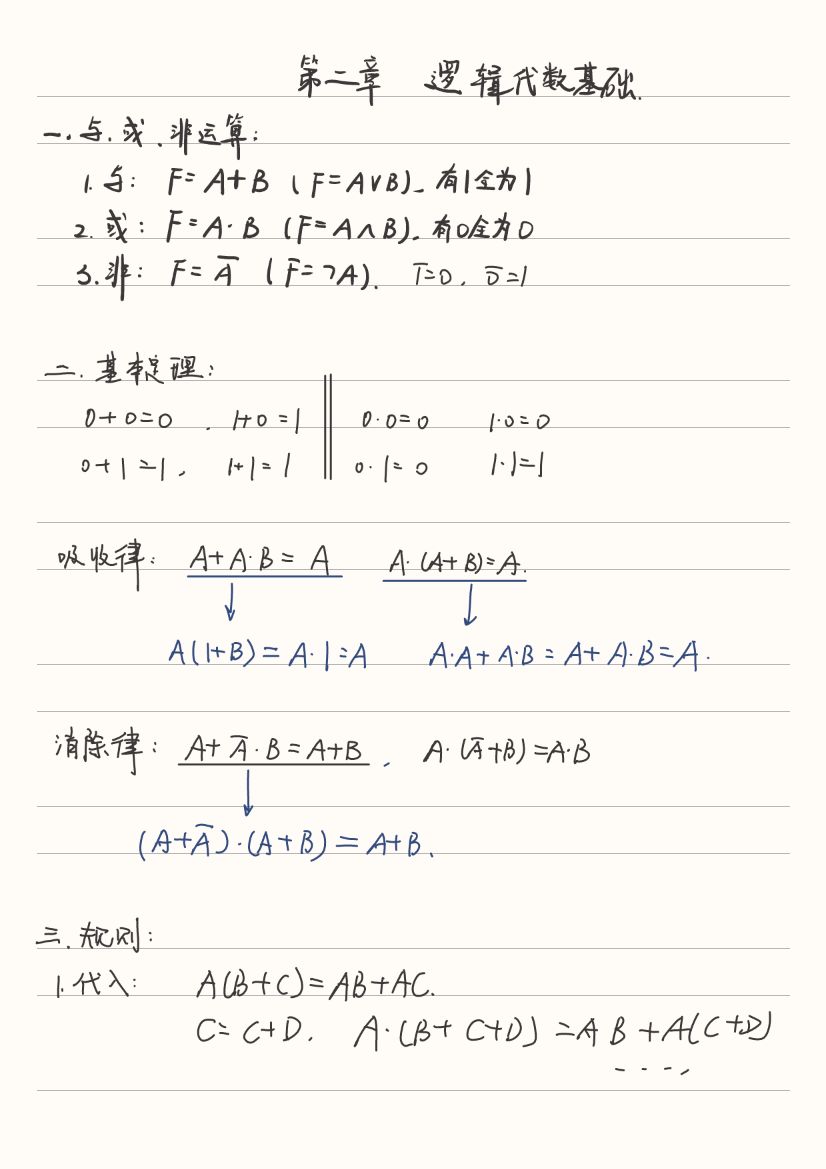 第二章 逻辑代数基础.
一.与.或.非运算:
1. 与: F=A+B (F=A∨B). 有1全为1
2. 或: F=A·B (F=A∧B). 有0全为0
3. 非: F=A̅ (F=¬A). 1̅=0. 0̅=1
二. 基本定理:
0+0=0 . 1+0=1 0·0=0 1·0=0
0+1=1, 1+1=1 0·1=0 1·1=1
吸收律: A+A·B=A A·(A+B)=A.
A(1+B)=A·1=A A·A+A·B=A+A·B=A.
消除律: A+A̅·B=A+B , A·(A̅+B)=A·B
(A+A̅)·(A+B)=A+B.
三.规则:
1.代入: A(B+C)=AB+AC.
C=C+D. A·(B+C+D)=AB+A(C+D)
- - - -,